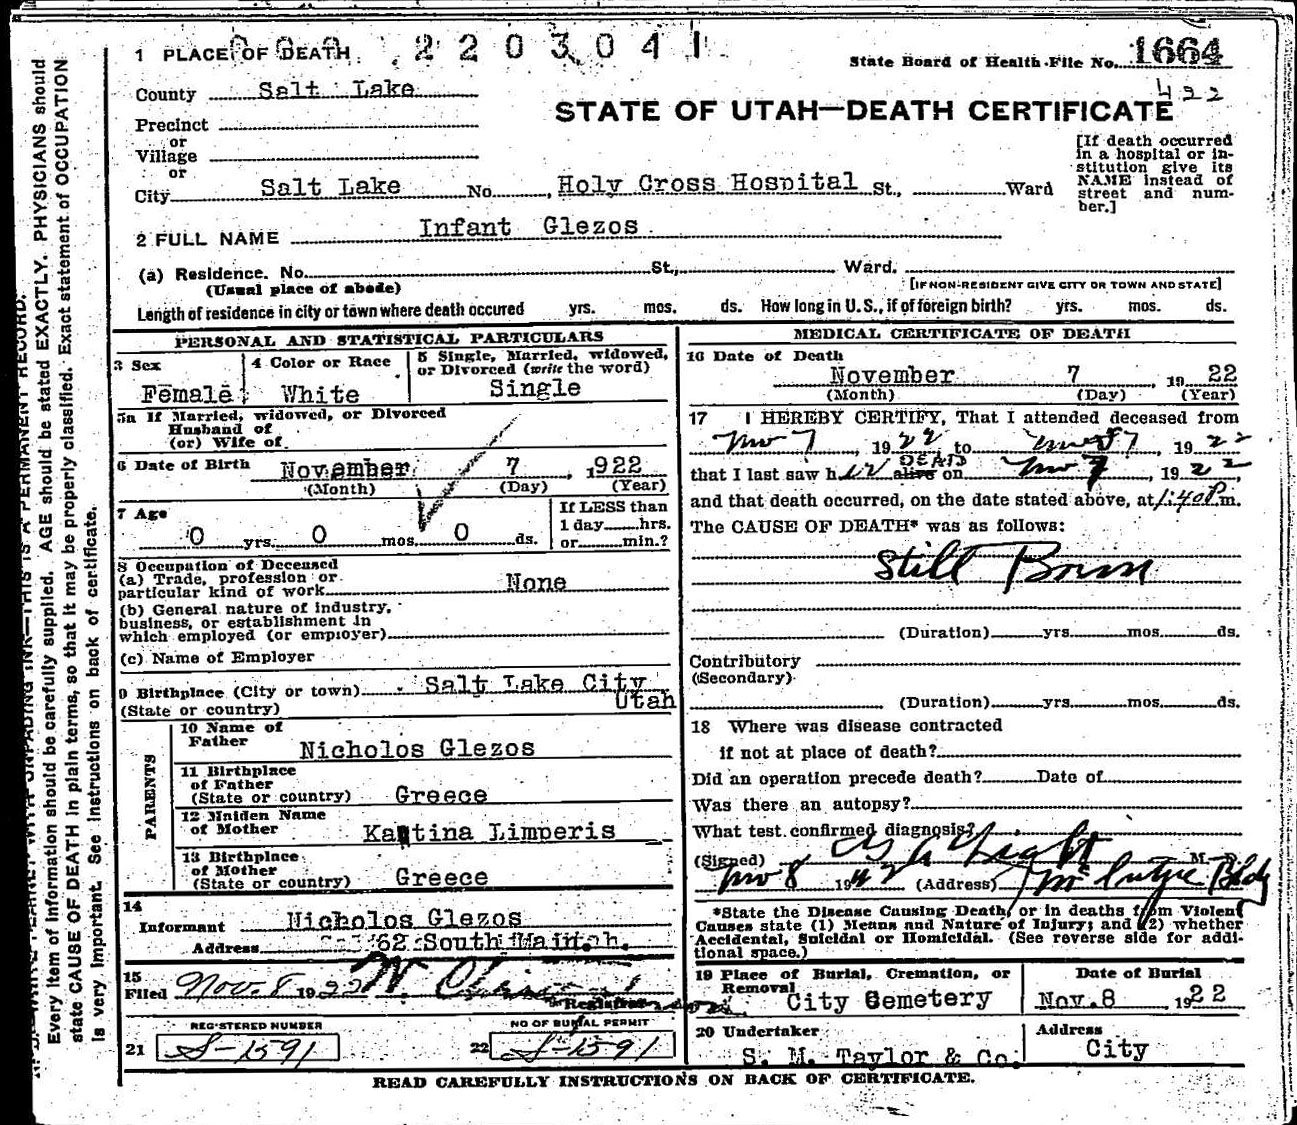 1 PLACE OF DEATH 2203041
State Board of Health File No. 1664
County Salt Lake
422
STATE OF UTAH—DEATH CERTIFICATE
Precinct
or
Village
or
City Salt Lake No. , Holy Cross Hospital St., Ward
[If death occurred
in a hospital or in-
stitution give its
NAME instead of
street and num-
ber.]
2 FULL NAME Infant Glezos
(a) Residence. No. St., Ward.
(Usual place of abode) [IF NON-RESIDENT GIVE CITY OR TOWN AND STATE]
Length of residence in city or town where death occured yrs. mos. ds. How long in U.S., if of foreign birth? yrs. mos. ds.
PERSONAL AND STATISTICAL PARTICULARS
3 Sex
Female
4 Color or Race
White
5 Single, Married, widowed,
or Divorced (write the word)
Single
5a If Married, widowed, or Divorced
Husband of
(or) Wife of
6 Date of Birth November 7, 1922
(Month) (Day) (Year)
7 Age
0 yrs. 0 mos. 0 ds.
If LESS than
1 day hrs.
or min.?
8 Occupation of Deceased
(a) Trade, profession or
particular kind of work None
(b) General nature of industry,
business, or establishment in
which employed (or employer)
(c) Name of Employer
9 Birthplace (City or town) Salt Lake City
(State or country) Utah
PARENTS
10 Name of
Father Nicholos Glezos
11 Birthplace
of Father
(State or country) Greece
12 Maiden Name
of Mother Kantina Limperis
13 Birthplace
of Mother
(State or country) Greece
14
Informant Nicholos Glezos
Address 62 South Main
15
Filed Nov. 8 1922 W.
Registrar
REGISTERED NUMBER
21 S-1591
NO OF BURIAL PERMIT
22 S-1591
MEDICAL CERTIFICATE OF DEATH
16 Date of Death
November 7, 1922
(Month) (Day) (Year)
17 I HEREBY CERTIFY, That I attended deceased from
Nov 7, 1922 to 7, 1922
that I last saw her alive DEAD on Nov 7, 1922
and that death occurred, on the date stated above, at 1:40P m.
The CAUSE OF DEATH* was as follows:
Still Born
(Duration) yrs. mos. ds.
Contributory
(Secondary)
(Duration) yrs. mos. ds.
18 Where was disease contracted
if not at place of death?
Did an operation precede death? Date of
Was there an autopsy?
What test confirmed diagnosis?
(Signed) M. D.
Nov 8 19 (Address) McIntyre Bldg
*State the Disease Causing Death, or in deaths from Violent
Causes state (1) Means and Nature of Injury; and (2) whether
Accidental, Suicidal or Homicidal. (See reverse side for addi-
tional space.)
19 Place of Burial, Cremation, or
Removal City Cemetery
Date of Burial
Nov. 8 1922
20 Undertaker
S. M. Taylor & Co.
Address
City
READ CAREFULLY INSTRUCTIONS ON BACK OF CERTIFICATE.
THIS IS A PERMANENT RECORD.
Every item of information should be carefully supplied. AGE should be stated EXACTLY. PHYSICIANS should
state CAUSE OF DEATH in plain terms, so that it may be properly classified. Exact statement of OCCUPATION
is very important. See instructions on back of certificate.